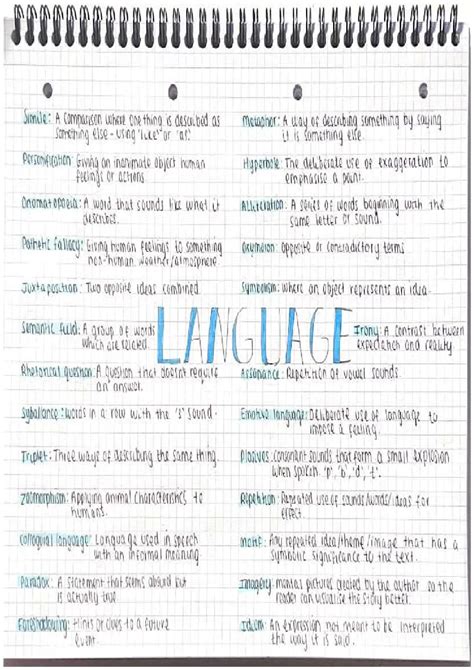 Simile: A comparison where one thing is described as
something else - using 'like' or 'as'.
Personification: Giving an inanimate object human
feelings or actions
Onomatopoeia: A word that sounds like what it
describes.
Pathetic fallacy: Giving human feelings to something
non-human. weather/atmosphere.
Juxtaposition: Two opposite ideas combined
Semantic field: A group of words
which are related.
Rhetorical question: A question that doesn't require
an answer.
Sybilance: words in a row with the 's' sound.
Triplet: Three ways of describing the same thing.
Zoomorphism: Applying animal characteristics to
humans.
Colloquial language: Language used in speech
with an informal meaning
Paradox: A statement that seems absurd but
is actually true.
Foreshadowing: Hints or clues to a future
event.
LANGUAGE
Metaphor: A way of describing something by saying
it is something else.
Hyperbole: The deliberate use of exaggeration to
emphasise a point.
Alliteration: A series of words beginning with the
same letter or sound.
Oxymoron: opposite or contradictory terms
Symbolism: where an object represents an idea.
Irony: A contrast between
expectation and reality
Assonance: Repetition of vowel sounds
Emotive language: Deliberate use of language to
impose a feeling.
Plosives: consonant sounds that form a small explosion
when spoken. 'p', 'b', 'd', 't'.
Repetition: Repeated use of sounds/words/ideas for
effect.
Motif: Any repeated idea/theme/image that has a
symbolic significance to the text.
Imagery: mental pictures created by the author so the
reader can visualise the story better.
Idiom: An expression not meant to be interpreted
the way it is said.